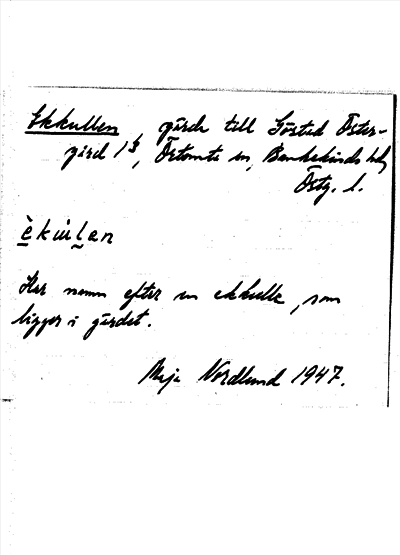 Ekkullen, gärde till Gösta Öster-
gård 1³, Örtomta sn, Bankekinds hd,
Östg. l.
èkúlan
Har namn efter en ekkulle, som
ligger i gärdet.
Maja Nordlund 1947.